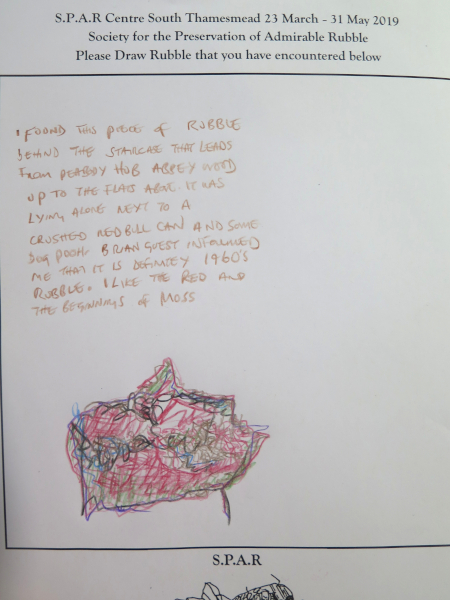 S.P.A.R Centre South Thamesmead 23 March - 31 May 2019
Society for the Preservation of Admirable Rubble
Please Draw Rubble that you have encountered below
I FOUND THIS PIECE of RUBBLE
BEHIND THE STAIRCASE THAT LEADS
FROM PEABODY HUB ABBEY WOOD
UP TO THE FLATS ABOVE. IT WAS
LYING ALONE NEXT TO A
CRUSHED RED BULL CAN AND SOME
DOG POOH. BRIAN GUEST INFORMED
ME THAT IT IS DEFINITEY 1960'S
RUBBLE. I LIKE THE RED AND
THE BEGINNINGS of MOSS
S.P.A.R